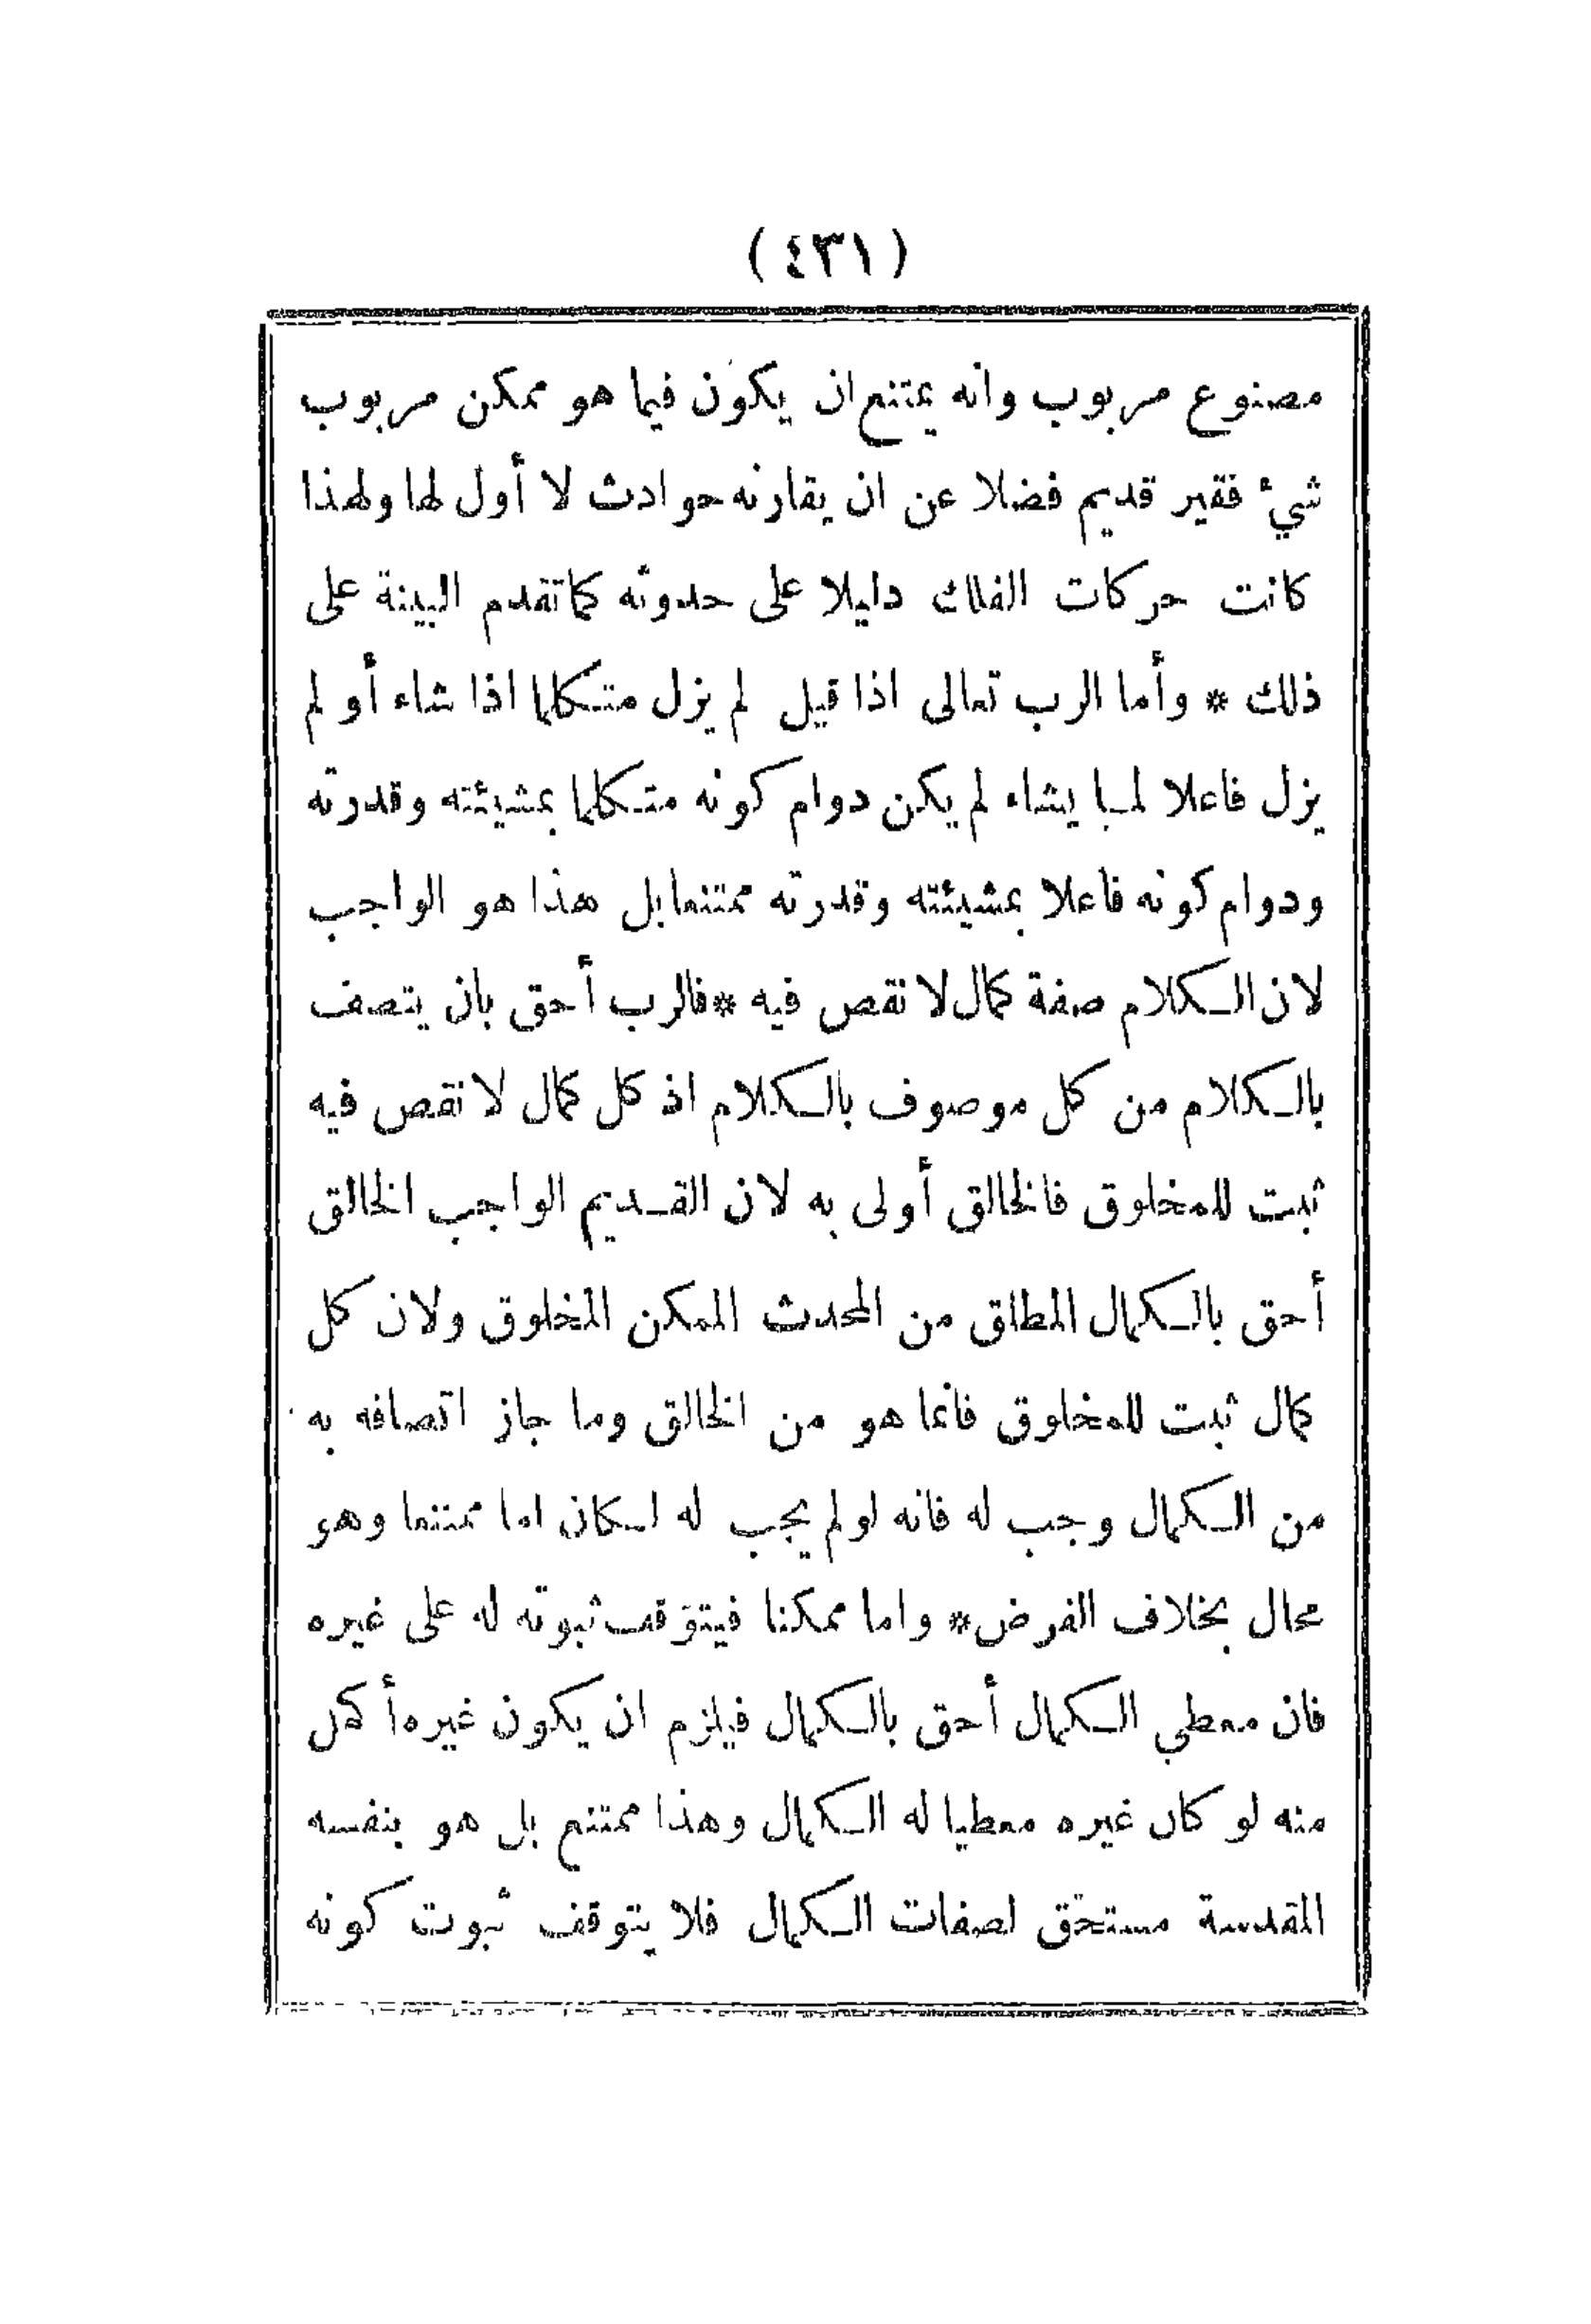 (٤٣١)
مصنوع مربوب وانه يمتنع ان يكون فيما هو ممكن مربوب
شيء فقير قديم فضلا عن ان يقارنه حوادث لا أول لها ولهذا
كانت حركات الفلك دليلا على حدوثه كما تقدم البينة على
ذلك * وأما الرب تعالى اذا قيل لم يزل متكلما اذا شاء أو لم
يزل فاعلا لما يشاء لم يكن دوام كونه متكلما بمشيئته وقدرته
ودوام كونه فاعلا بمشيئته وقدرته ممتنعا بل هذا هو الواجب
لان الكلام صفة كمال لا نقص فيه * فالرب أحق بان يتصف
بالكلام من كل موصوف بالكلام اذ كل كمال لا نقص فيه
ثبت للمخلوق فالخالق أولى به لان القديم الواجب الخالق
أحق بالكمال المطلق من المحدث الممكن المخلوق ولان كل
كمال ثبت للمخلوق فانما هو من الخالق وما جاز اتصافه به
من الكمال وجب له فانه لو لم يجب له لكان اما ممتنعا وهو
محال بخلاف الفرض * واما ممكنا فيتوقف ثبوته له على غيره
فان معطي الكمال أحق بالكمال فيلزم ان يكون غيره أكمل
منه لو كان غيره معطيا له الكمال وهذا ممتنع بل هو بنفسه
المقدسة مستحق لصفات الكمال فلا يتوقف ثبوت كونه